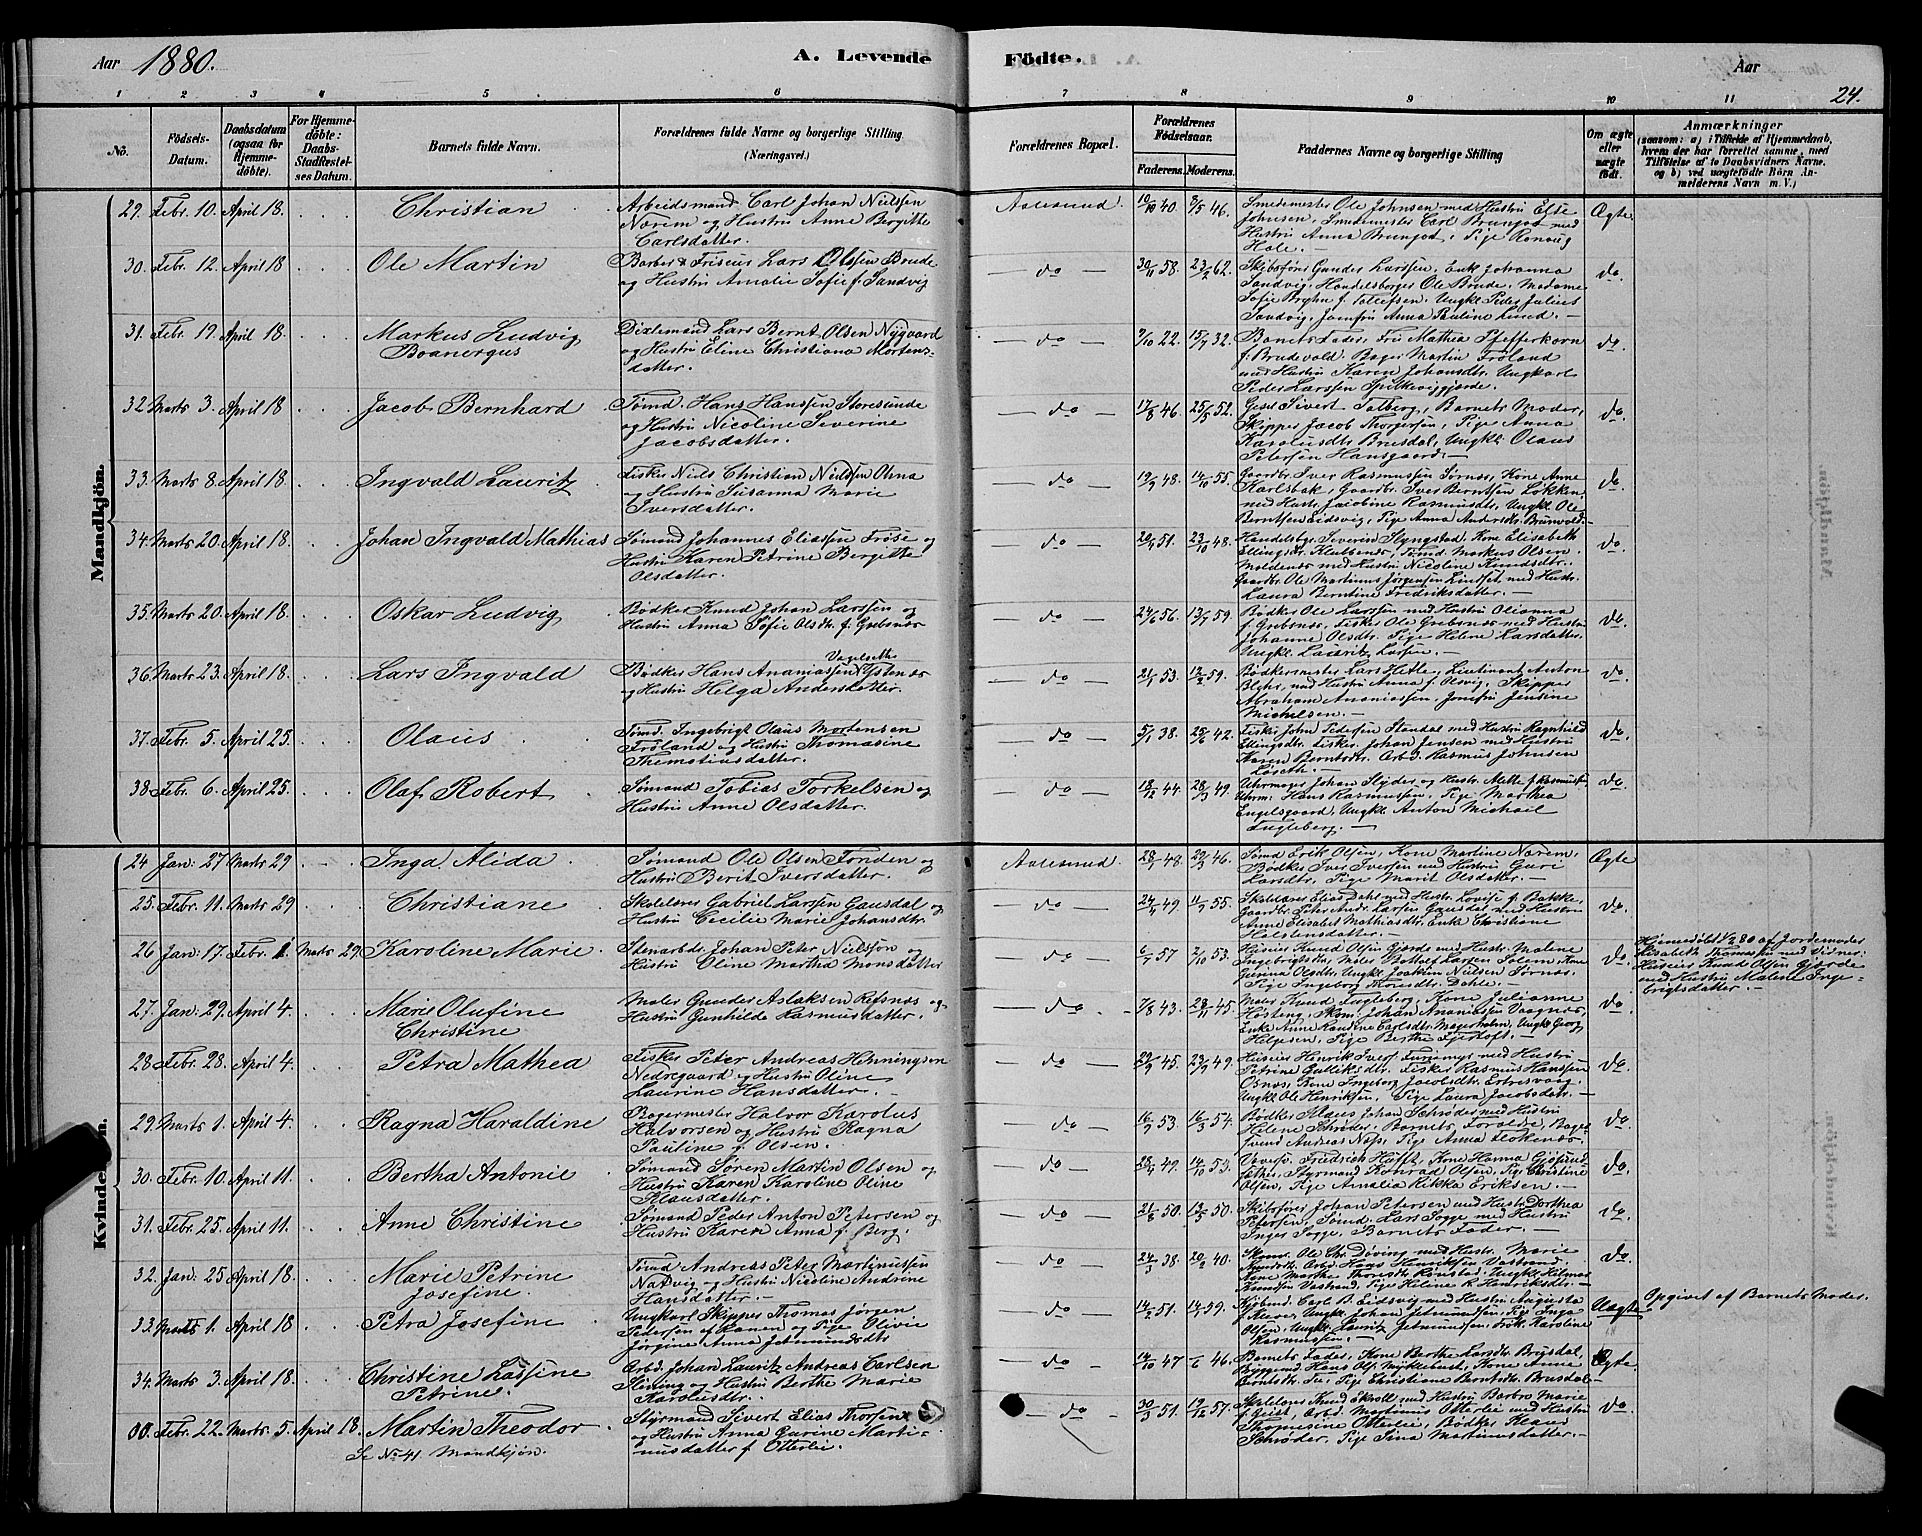 Aar 1880.
A. Levende
Födte.
Aar
24.
1 2 3 4 5 6 7 8 9 10 11
No.
Födsels-Datum.
Daabsdatum (ogsaa for Hjemme-döbte).
For Hjemme-döbte: Daabs-Stadfæstel-ses Datum.
Barnets fulde Navn.
Forældrenes fulde Navne og borgerlige Stilling (Næringsvei.)
Forældrenes Bopæl.
Forældrenes Födselsaar.
Faderens. Moderens.
Faddernes Navne og borgerlige Stilling
Om ægte eller uægte födt.
Anmærkninger
(saasom: a) i Tilfælde af Hjemmedaab,
hvem der har forrettet samme, med
Tilföielse af to Daabsvidners Navne,
og b) ved uægtefödte Börn An-
melderens Navn m. V.)
Mandkjön.
29. Febr. 10. April 18. Christian
Arbeidsmand Carl Johan Nielsen
Norem og Hustru Anne Bergitte
Carlsdatter.
Aalesund 10/10 40. 9/5 46.
Smedemester Ole Johnsen med Hustru Else
Johnsen, Smedemester Carl Brunsjod med
Hustru Anna Brunsjod, Pige Ronnug
Hole.
Ægte
30. Febr. 12. April 18 Ole Martin
Barber & Friseur Lars Olsen Brude
og Hustru Amalie Sofie f. Sandvig
do 30/11 58. 23/2 62.
Skibsförer Gunder Larssen, Enke Johanna
Sandvig, Handelsborger Ole Brude, Madame
Sofie Bryhn f. Tollefsen, Ungkl. Peder Julius
Sandvig, Jomfru Anna Pauline Lund.
do.
31. Febr. 17. April 18. Markus Ludvig
Boanergus
Dixlemand Lars Bernt Olsen Nygaard
og Hustru Eline Christiana Mortens-
datter.
do 9/10 22. 15/7 32.
Barnets Fader, Fru Mathea Pfefferkorn
f. Brudevold, Bager Martin Fröland
med Hustru Karen Johansdtr. Ungkarl
Peder Larssen Spilkeviggjerde.
do.
32 Marts 3. April 18 Jacob Bernhard
Tømd. Hans Hanssen Storesunde
og Hustru Nicoline Severine
Jacobsdatter.
do 17/8 46. 25/5 52.
Gesel Sivert Tolberg, Barnets Moder,
Skipper Jacob Thorgersen, Pige Anna
Karolusdt. Brusdal, Ungkl. Olaus
Petersen Hansgaard.
do.
33. Marts 8. April 18 Ingvald Lauritz
Fisker Niels Christian Nielsen Olna
og Hustru Susanna Marie
Iversdatter.
do 19/9 48. 14/10 55.
Gaardbr. Iver Rasmussen Sørnes, Kone Anne
Karlsbak, Gaardbr. Iver Berntsen Løkken
med Hustr. Jacobine Rasmusdtr. Ungkl. Ole
Berntsen Eidsvig, Pige Anna Andersdtr. Brunvold.
do
34. Marts 20. April 18. Johan Ingvald Mathias
Sømand Johannes Eliassen Frøse og
Hustru Karen Petrine Bergitte
Olsdatter.
do 20/1 51. 23/10 48.
Handelsbgr. Severin Slyngstad, Kone Elisabeth
Ellingsdtr. Klubbenes, Tømd. Markus Olsen
Moldenæs med Hustru Nicoline Knudsdtr.
Gaardbr. Ole Martinus Jørgensen Lindset med Hustr.
Laura Berntine Fredriksdatter.
do.
35. Marts 20. April 18. Oskar Ludvig
Bødker Knud Johan Larssen og
Hustru Anna Sofie Olsdtr. f. Grebsnæs
do 24/6 56. 13/7 59.
Bødker Ole Larssen med Hustru Olianna
f. Grebsnæs, Fisker Ole Grebsnæs med Hustru
Johanne Olsdtr. Pige Helene Larsdatter
Ungkl. Lauritz Larsen.
do.
36. Marts 23. April 18. Lars Ingvald
Bødker Hans Ananiassen Ystenes
og Hustru Helga Andersdatter.
do 21/1 53. 12/2 59.
Bødkermester Lars Hetle, Lieutinant Anton
Blehr, med Hustru Anna f. Olsvig, Skipper
Abraham Ananiassen, Jomfru Jensine
Michelsen.
do.
37. Febr. 5. April 25. Olaus
Tømd. Ingebrigt Olaus Mortensen
Fröland og Hustru Thomasine
Themotiusdatter.
do 5/1 38. 25/6 42.
Fisker John Pedersen Standal med Hustru Ragnhild
Ellingsdtr. Fisker Johan Jensen med Hustru
Karen Berntsdtr. Arbd. Rasmus Johnsen
Løseth.
do.
38. Febr. 6. April 25. Olaf Robert
Sømand Tobias Torkelsen og
Hustru Anne Olsdatter.
do 18/12 44. 28/3 49.
Uhrmager Johan Slyder og Hustr. Mette f. Rasmussen,
Uhrm. Hans Rasmussen, Pige Marthea
Engelsgaard, Ungkl. Anton Michael
Fugleberg.
do.
Kvindekjön.
24 Jan: 27 Marts 29 Inga Alida
Sømand Ole Olsen Fonden og
Hustru Berit Iversdatter.
Aalesund. 28/1 48. 29/3 46.
Sømd Erik Olsen, Kone Martine Norem,
Bødker Iver Iversen med Hustru Guri
Larsdtr, Pige Marit Olsdatter.
Ægte
25. Febr. 11. Marts 29 Christiane
Skolelærer Gabriel Larsen Gausdal og
Hustru Cecilie Marie Johansdtr.
do 24/4 49. 11/7 55.
Skolelærer Elias Dahl med Hustr. Lovise f. Bakke,
Gaardbr. Peter Andr. Larsen Gausdal med Hustru
Anne Elisabet Mathiasdtr. Enke Christiane
Holstensdatter.
do.
26 Jan: 17. Febr. 1. Marts 29. Karoline Marie
Stenarbdr. Johan Peter Nielssøn og
Hustru Oline Martha Monsdatter
do 6/7 57 2/10 53.
Huseier Knud Olsen Gjerde med Hustr. Malene
Ingebrigtsdtr, Maler Larsen Solem, Kone
Gurina Olsdtr. Ungkl. Joakim Nielsen Sørnæs,
Pige Ingeborg Thoresdtr. Dahle.
do.
Hjemedøbt 1/2 80 af Jordemoder
Elisabeth Thomassen med Vidner:
Huseier Knud Olsen Gjerde
med Hustru Malene Inge-
brigtsdatter.
27. Jan: 29. April 4. Marie Olufine
Christine
Maler Gunder Aslaksen Refsnæs og
Hustru Gunhilde Rasmusdatter.
do 7/8 43. 28/11 45.
Maler Knud Fugleberg, Kone Julianne
Høsteng, Skom. Johan Ananiassen Vaagnæs,
Enke Anne Randine Carlsdtr. Magerholm, Ungkl. Georg
Helgesen, Pige Berthe Fjørtoft.
do
28 Febr. 28. April 4. Petra Mathea
Fisker Peter Andreas Henningsen
Nedregaard og Hustru Oline
Laurine Hansdatter.
do 29/9 45. 23/9 49.
Huseier Henrik Ivers. Furemyr med Hustru
Petrine Gulliksdtr. Fisker Rasmus Hanssen
Osnæs, Kone Ingeborg Jacobsdtr. Ertresvaag,
Ungkl. Ole Henriksen, Pige Laura Jacobsdtr.
do.
29. Marts 1. April 4. Ragna Haraldine
Bagermester Halvor Karolus
Halvorsen og Hustru Ragna
Pauline f. Olsen.
do 16/7 53. 16/3 54.
Bødker Klaus Johan Schrøder med Hustru
Helene Schrøder, Barnets Forældre, Bager
svend Andreas Næss, Pige Anna Flotkenæs.
do.
30. Febr. 10. April 11. Bertha Antonie
Sømand Søren Martin Olsen og
Hustru Karen Karoline Oline
Klausdatter.
do 28/4 49. 14/10 53.
Værtsv. Friedrich Hufst, Kone Hanna Gjøsund
Fethe, Styrmand Konrad Olsen, Pige Christine
Olsen, Pige Amalia Rikka Eriksen.
do.
31. Febr. 25. April 11. Anne Christine
Sømand Peder Anton Petersen og
Hustru Karen Anna f. Berg.
do 21/8 50. 13/5 50.
Skibsförer Johan Petersen med Hustr. Dorthea
Petersen, Sømd. Lars Sogge med Hustru
Inger Sogge, Barnets Fader.
do.
32. Jan: 25 April 18. Marie Petrine
Josefine.
Tømd Andreas Peter Martinussen
Natvig og Hustru Nicoline Andrine
Hansdatter.
do 24/3 38. 20/2 40.
Skom. Ole Chr. Døving med Hustr. Marie
Knudsdtr. Arbd. Hans Henriksen Vastrand,
Kone Marthe Thoresdtr. Rønstad, Ungkl. Hilmar
Knudsen Vastrand, Pige Helene K. Henriksdtr.
do
33. Marts 1. April 18 Petra Josefine
Ungkarl Skipper Thomas Jørgen
Pedersen af Kanen og Pige Olivie
Jørgine Anna Jetmundsdtr
do 14/2 51. 14/7 59.
Kjøbmd. Carl B. Eidsvig med Hustru Augusta
f. Meyer, Ungkl. Johan Jetmundsen, Pige Inga
Olsen, Ungkl. Lauritz Jetmundsen, Frk. Karoline
Rasmussen.
Uægte
Opgivet af Barnets Moder.
34. Marts 3. April 18. Christine Lassine
Petrine.
Arbd. Johan Lauritz Andreas Carlsen
Slening og Hustru Berthe Marie
Karolusdtr.
do 14/10 47 /6 46.
Barnets Fader, Kone Berthe Larsdtr. Brigsdal,
Bygmd. Hans Ols. Myklebust, Kone Anne
Berntsdtr. Tue, Pige Christiane Berntsdtr. Brusdal
Ægte.
00. Febr. 22. Marts 5. April 18. Martin Theodor
Se No. 41 Mandkjøn.
Styrmand Sivert Elias Thorsen
og Hustru Anna Gurine Marti-
nusdatter f. Otterlei.
do 30/3 51. 19/12 57.
Skolelærer Knud Skroll med Hustru Barbro Marie
f. Geist, Arbd. Martinus Otterlei med Hustru
Thomesine Otterlei, Bødker Klaus
Schrøder, Pige Sina Martinusdatter.
do.